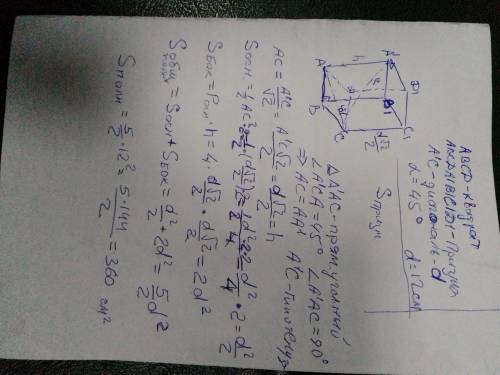 ABCD-квадрат
ABCDA1B1C1D1-Призма
A1C-диагональ-d
α=45° d=12см
Sпризм
A A1 B B1 C C1 D1
d√2/2
△A1AC-прямоугольный
∠A1CA=45° ∠A1AC=90°
⇒ AC=AA1 A1C-гипотенуза
AC=A1C/√2=A1C√2/2=d√2/2=h
Sосн=1/2 AC²
=d²/2
Sбок=Pосн·h=4·d√2/2=2d²
Sобщ=Sосн+Sбок=d²/2+2d²=5/2d²
Sполн=5/2·12²=5·144/2=360 см²